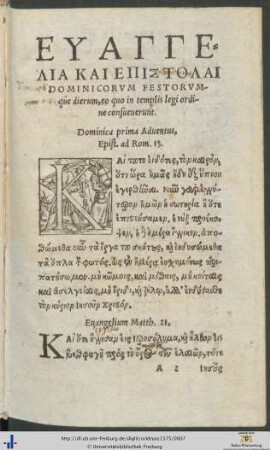 ΕΥΑΓΓΕ-
ΛΙΑ ΚΑΙ ΕΠΙΣΤΟΛΑΙ
DOMINICORVM FESTORVM-
que dierum, eo quo in templis legi ordi-
ne consueuerunt.
Dominica prima Aduentus,
Epist. ad Rom. 13.
Καὶ τοῦτο εἰδότες, τὸν καιρόν,
ὅτι ὥρα ἡμᾶς ἤδη ἐξ ὕπνου
ἐγερθῆναι. Νῦν γὰρ ἐγγύ-
τερον ἡμῶν ἡ σωτηρία ἢ ὅτε
ἐπιστεύσαμεν. ἡ νὺξ προέκο-
ψεν, ἡ ἡμέρα ἤγγικεν, ἀπο-
θώμεθα οὖν τὰ ἔργα τοῦ σκότους, καὶ ἐνδυσώμεθα
τὰ ὅπλα τοῦ φωτός. ὡς ἐν ἡμέρᾳ εὐσχημόνως περι-
πατήσωμεν. μὴ κώμοις, καὶ μέθαις, μὴ κοίταις
καὶ ἀσελγείαις, μὴ ἔριδι, καὶ ζήλῳ, ἀλλ' ἐνδύσασθε
τὸν κύριον Ἰησοῦν Χριστόν.
Euangelium Matth. 21.
Καὶ ὅτε ἤγγισαν εἰς Ἱεροσόλυμα, καὶ ἦλθον εἰς
Βηθφαγῆ πρὸς τὸ ὄρος τῶν ἐλαιῶν, τότε
A 2 Ἰησοῦς
http://dl.ub.uni-freiburg.de/diglit/
© Universitätsbibliothek Freiburg